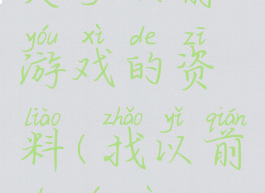 yóu xì de zī
游戏的资
liào zhǎo yǐ qián
料(找以前